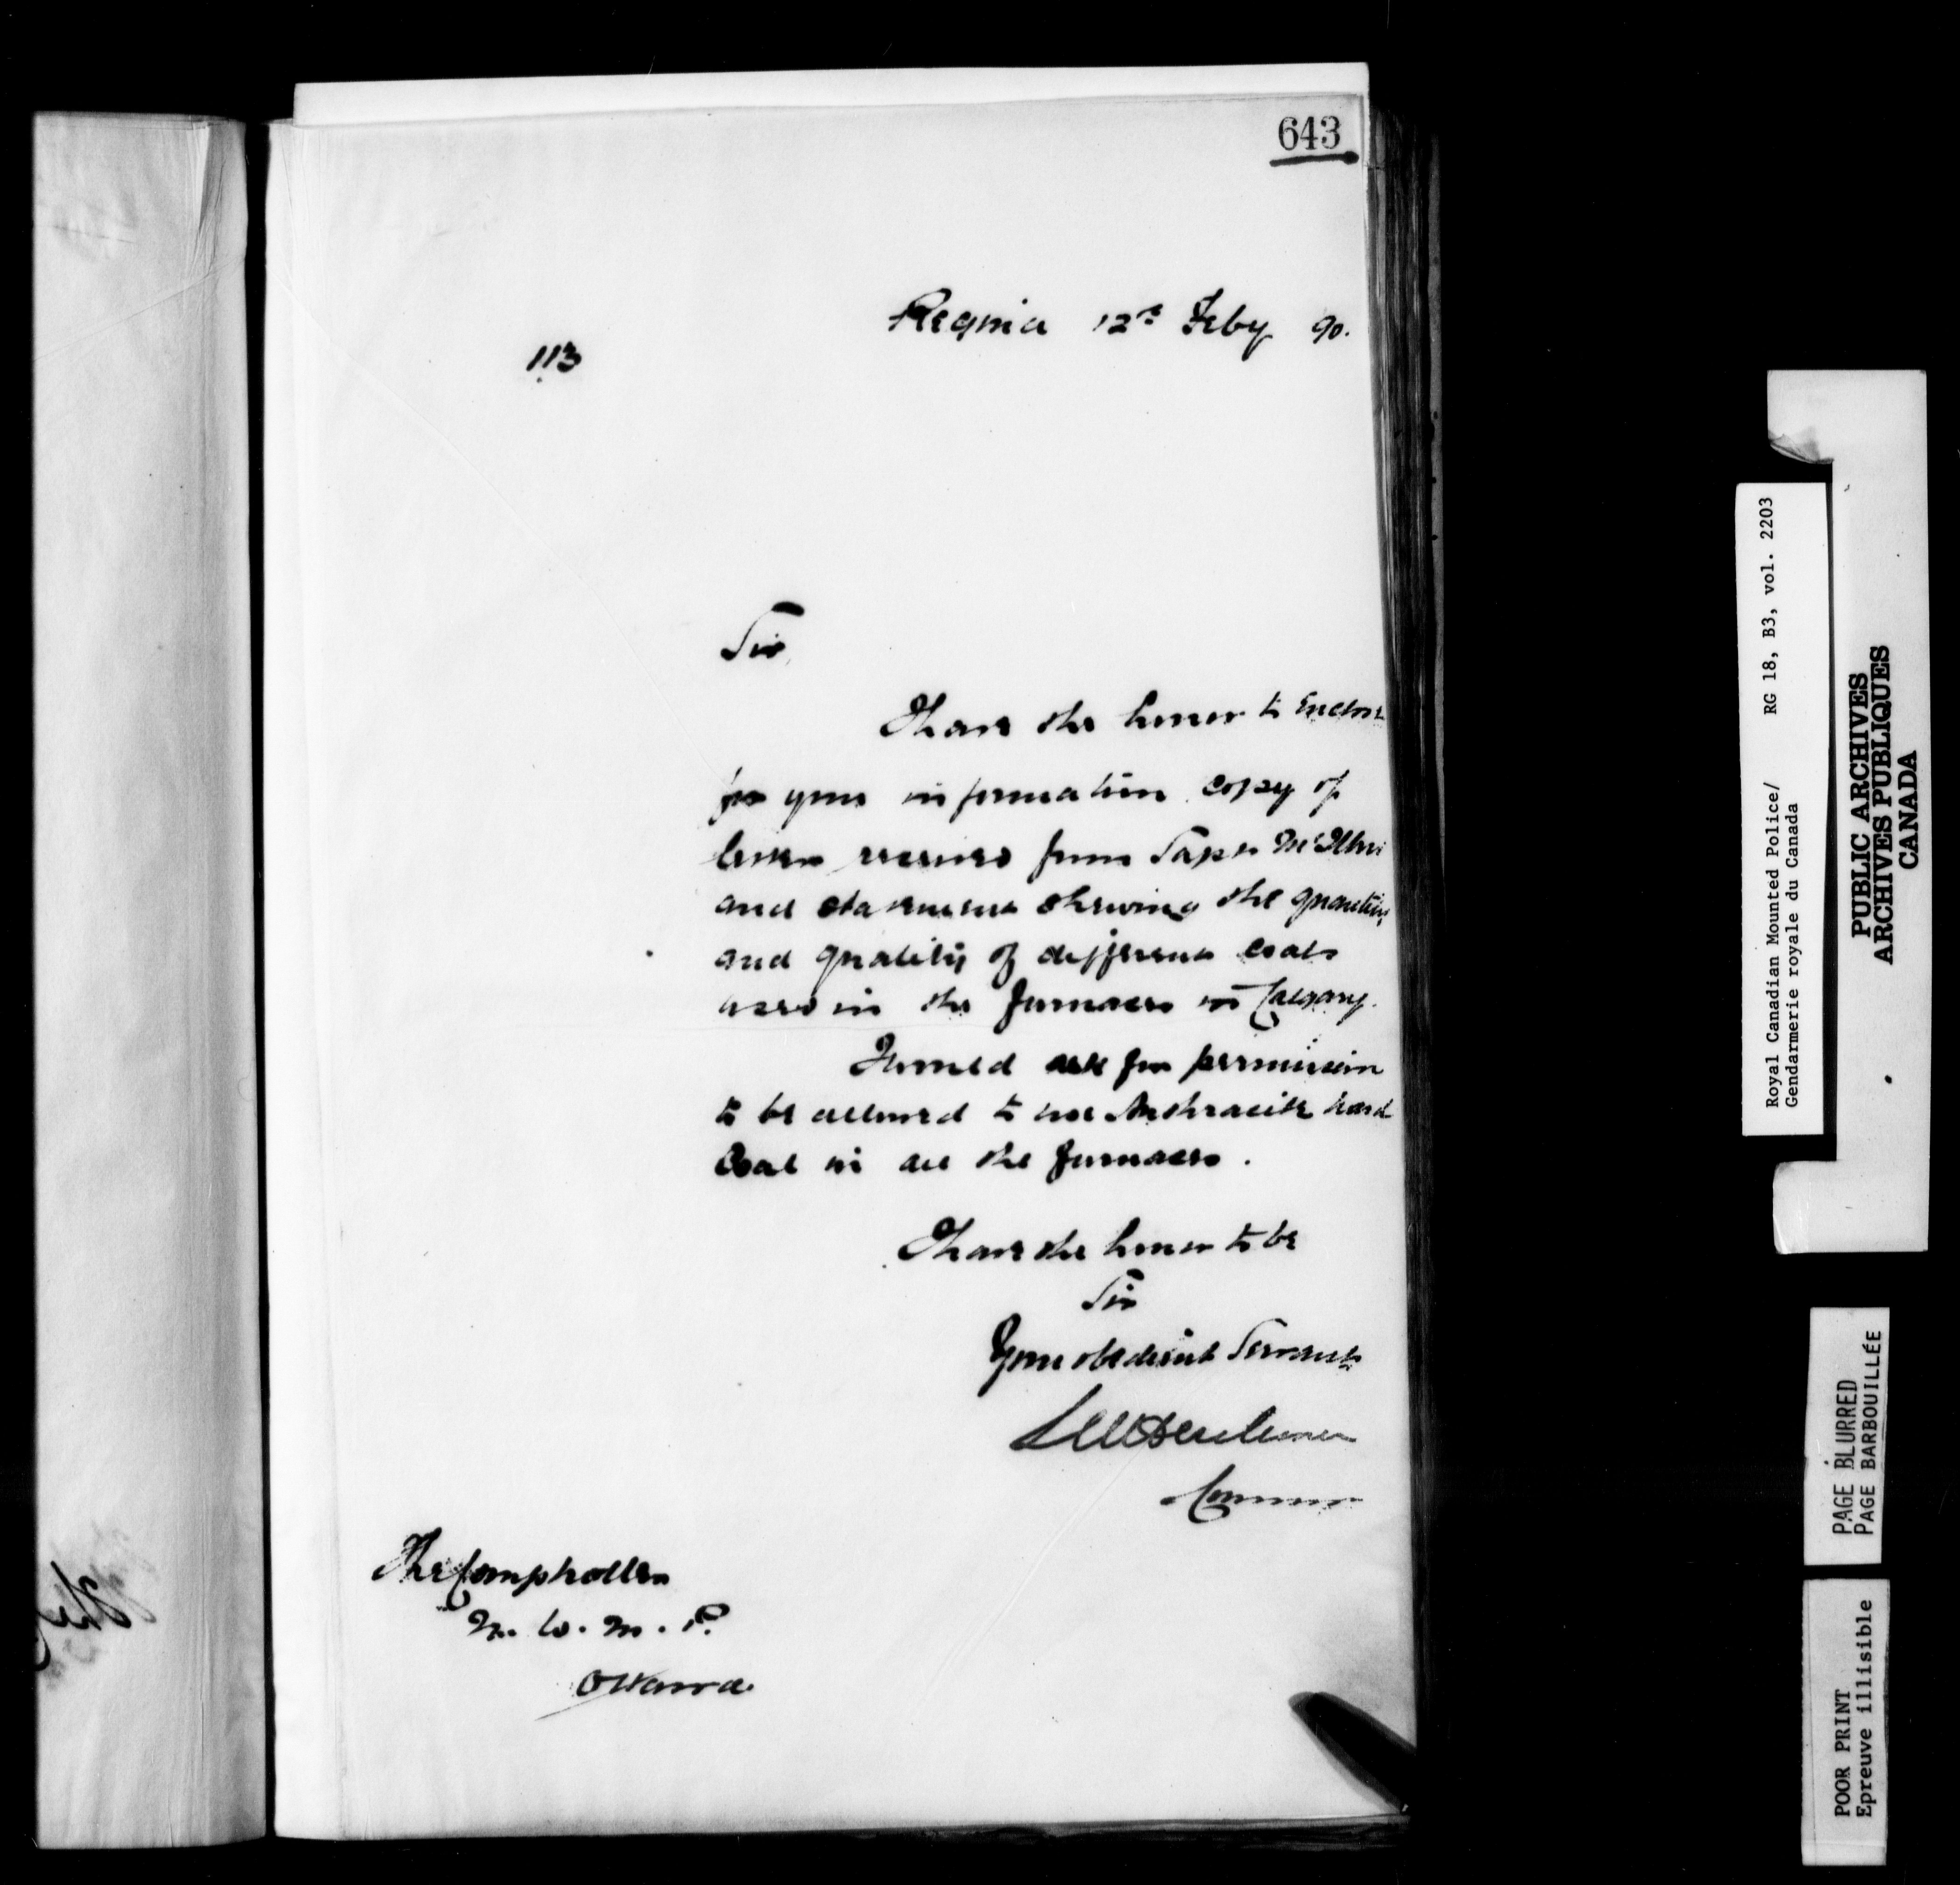 643
Regina 12th Feby 90.
113
Sir,
I have the honor to enclose
for your information copy of
letter received from Supt McIllree
and statement shewing the quantity
and quality of different coals
used in the furnaces in Calgary.
I would ask for permission
to be allowed to use Anthracite hard
Coal in all the furnaces.
I have the honor to be
Sir
Your obedient Servant
LWHerchmer
Commr
The Comptroller
N. W. M. P.
Ottawa
Royal Canadian Mounted Police/ RG 18, B3, vol. 2203
Gendarmerie royale du Canada
PUBLIC ARCHIVES
ARCHIVES PUBLIQUES
CANADA
PAGE BLURRED
PAGE BARBOUILLÉE
POOR PRINT
Epreuve illisible